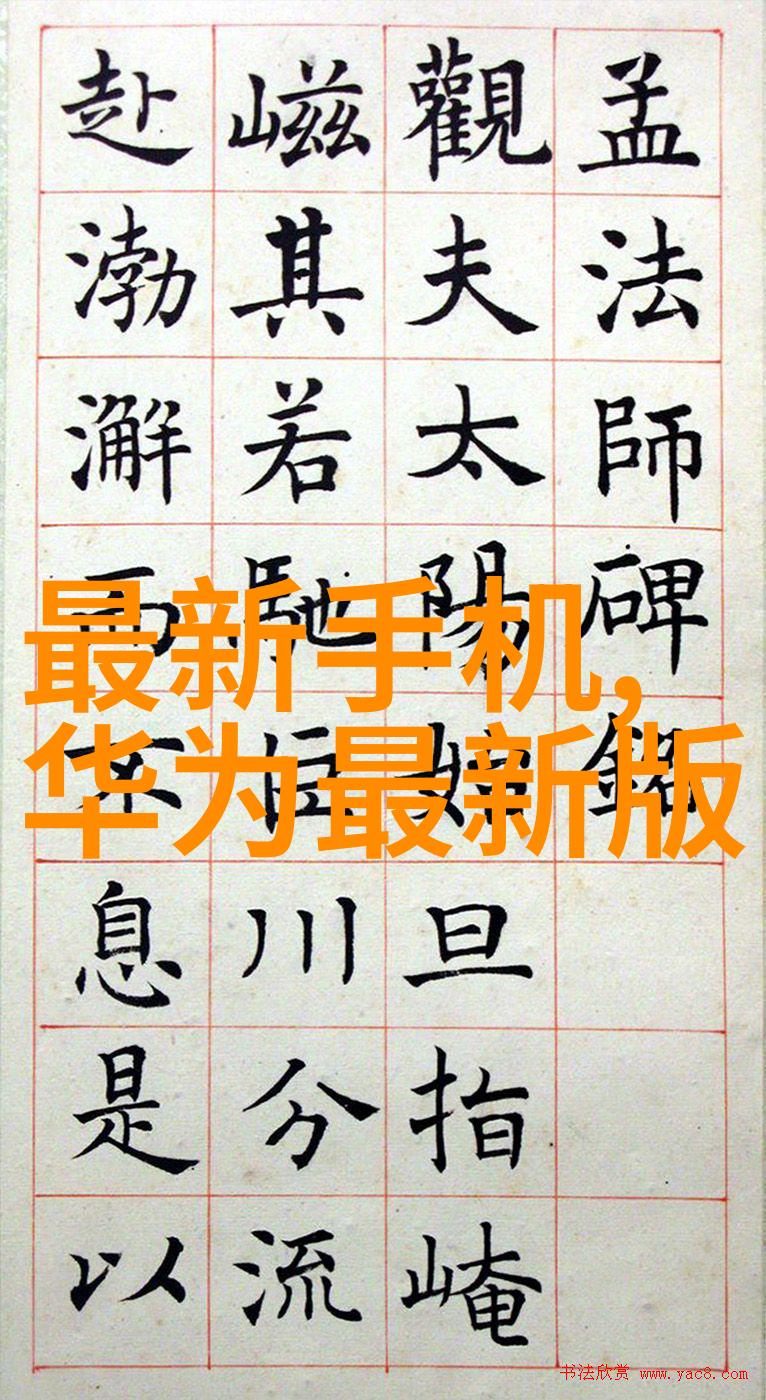 孟法師碑銘
觀夫太陽旦指崦
嵫其若馳川分流
赴渤澥而不息是以
最新手机,
华为最新版
书法欣赏 www.yac8.com